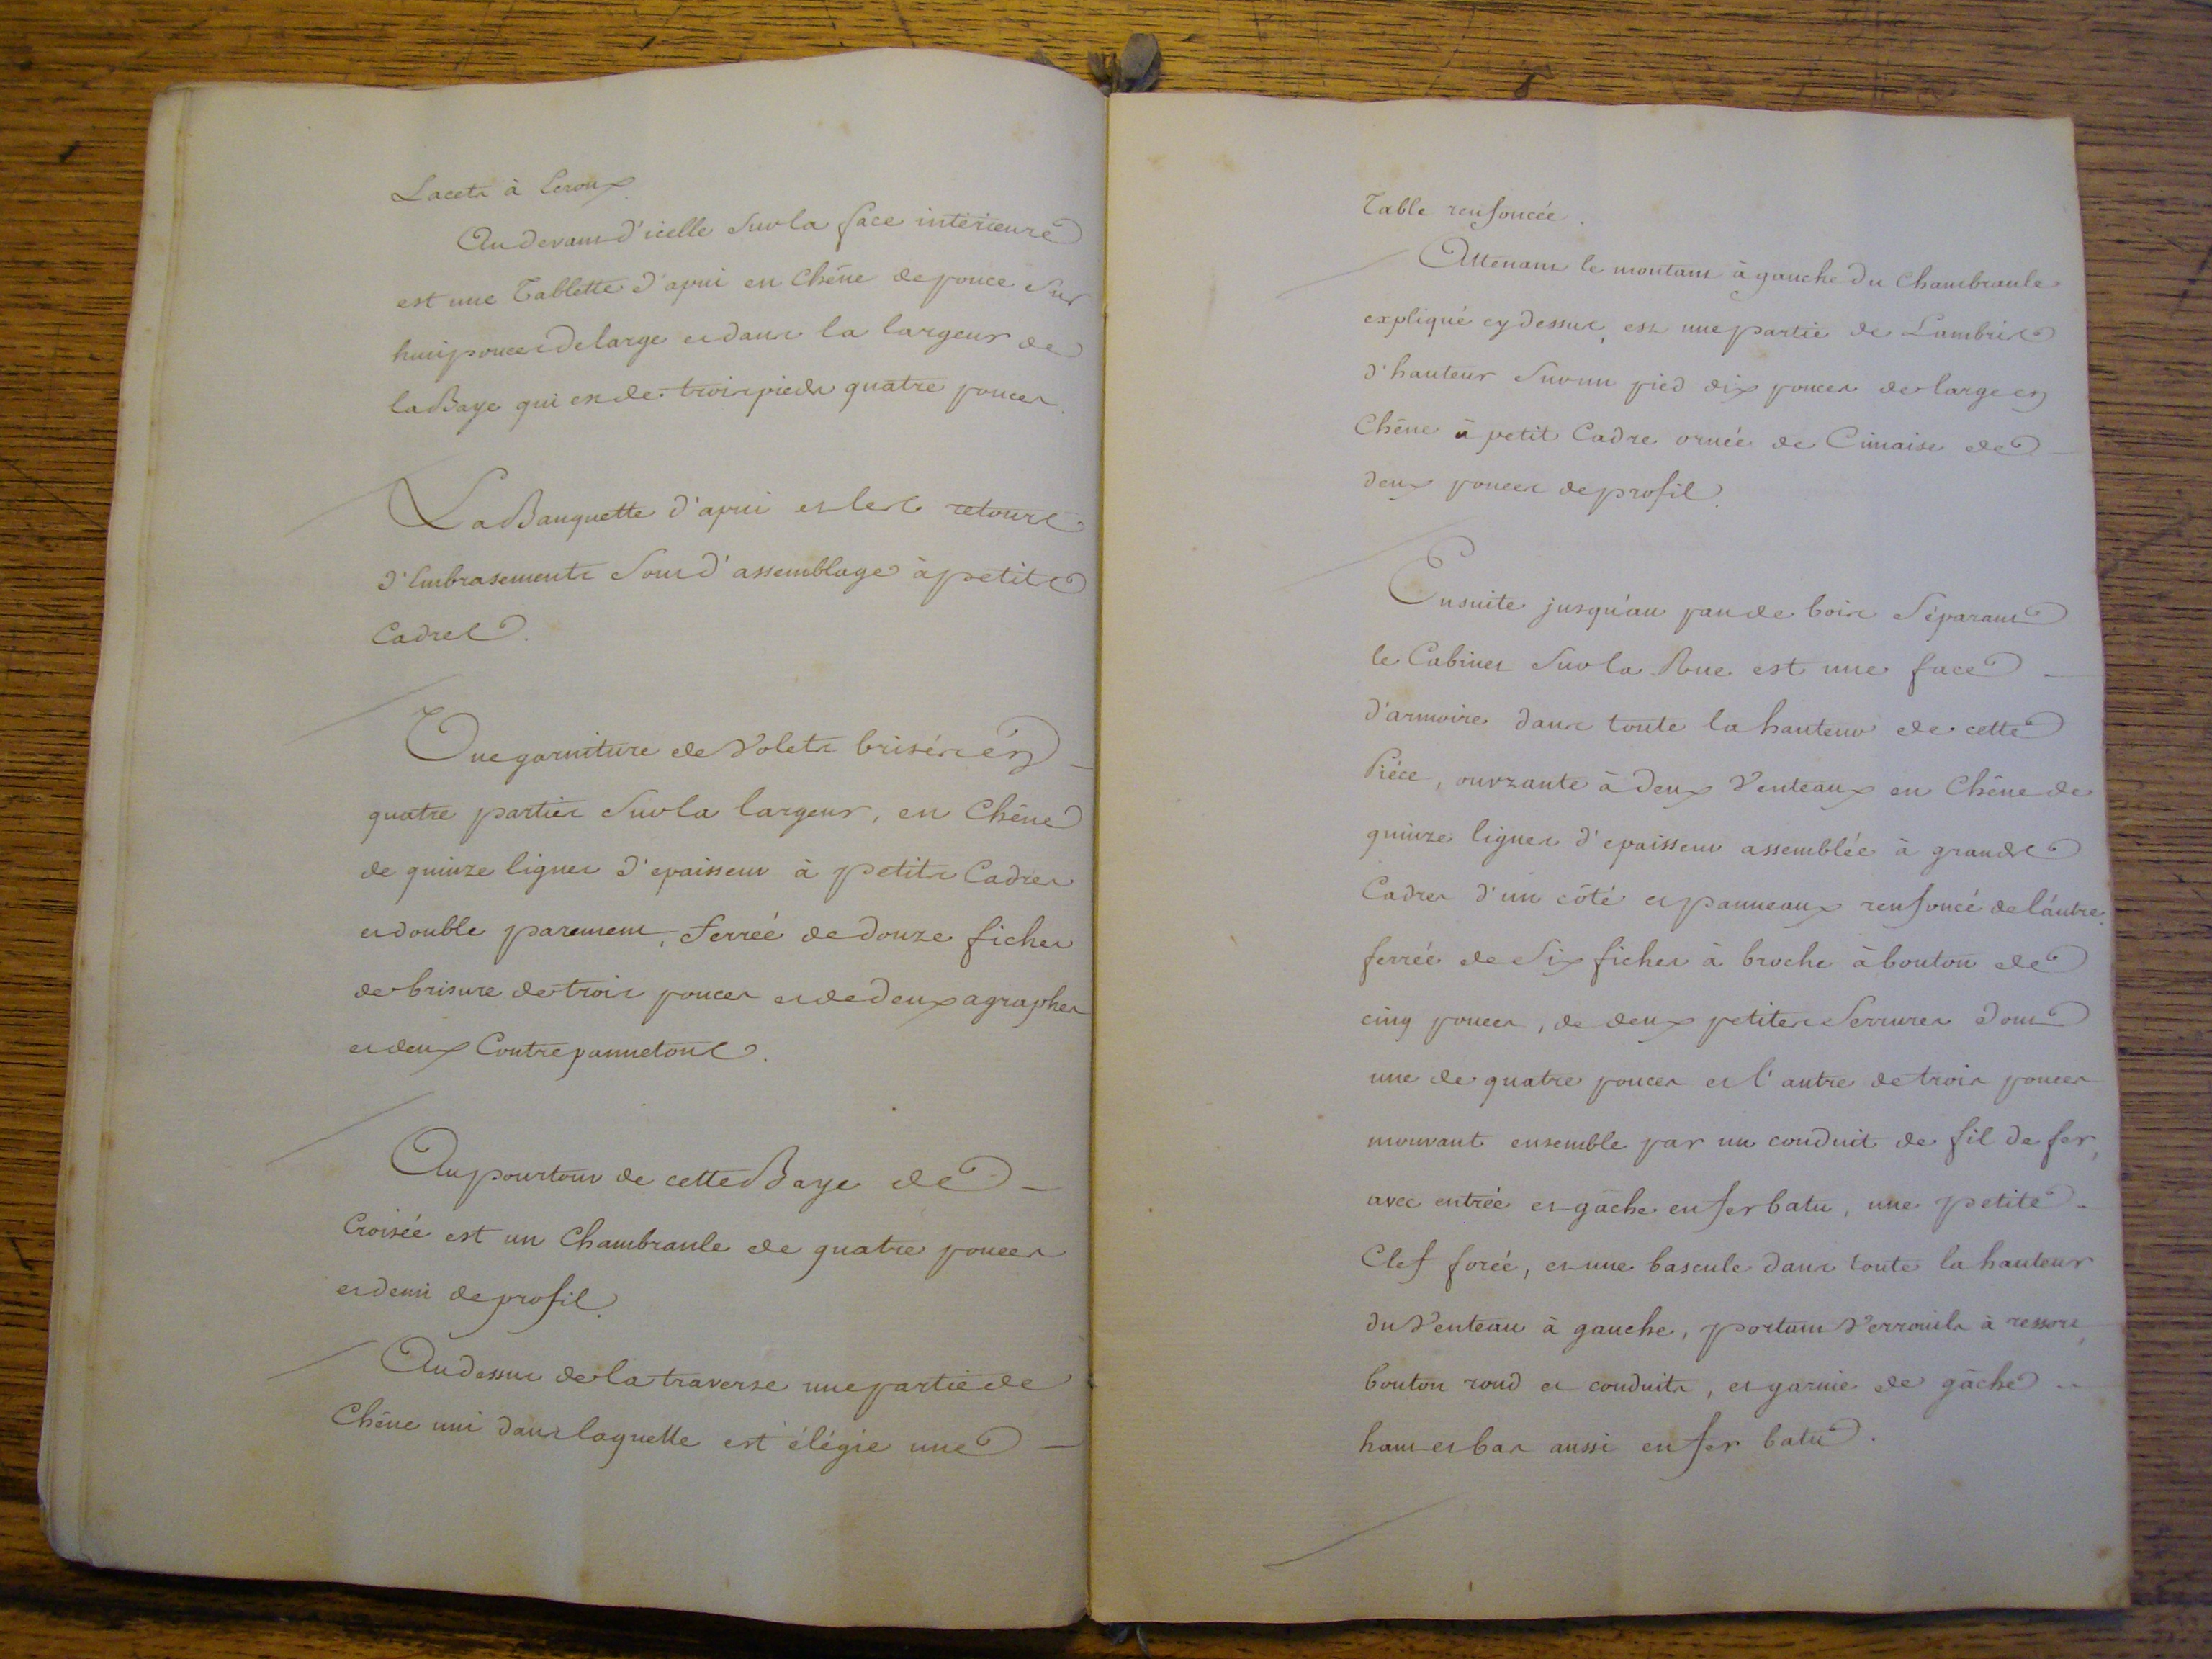 Lacets à Ecroux.
Au devant d'icelle Sur la face intérieure
est une Tablette d'apui en Chêne de pouce Sur
huit pouces de large et dans la largeur de
la Baye qui est de trois pieds quatre pouces.
La Banquette d'apui et les retours
d'Embrasements Sont d'assemblage à petits
Cadres.
Une garniture de Volets brisés en
quatre parties Sur la largeur, en Chêne
de quinze lignes d'epaisseur à petits Cadres
et double parement, ferrée de douze fiches
de brisure de trois pouces et de deux agraphes
et deux Contrepannetons.
Au pourtour de cette Baye de
Croisée est un Chambranle de quatre pouces
et demi de profil.
Au dessus de la traverse une partie de
Chêne uni dans laquelle est élégie une
Table renfoncée.
Attenant le montant à gauche du Chambranle
expliqué cy dessus, est une partie de Lambris
d'hauteur Sur un pied dix pouces de large en
Chêne à petit Cadre ornée de Cimaise de
deux pouces de profil.
Ensuite jusqu'au pan de bois Séparant
le Cabinet Sur la Rue est une face
d'armoire dans toute la hauteur de cette
Piéce, ouvrante à deux Venteaux en Chêne de
quinze lignes d'epaisseur assemblée à grands
Cadres d'un côté et panneaux renfoncé de l'autre,
ferrée de Six fiches à broche à bouton de
cinq pouces, de deux petites Serrures dont
une de quatre pouces et l'autre de trois pouces
mouvant ensemble par un conduit de fil de fer,
avec entrée et gâche en fer batu, une petite
Clef forée, et une bascule dans toute la hauteur
du Venteau à gauche, portant Verrouils à ressort,
bouton rond et conduits, et garnie de gâche
haut et bas aussi en fer batu.